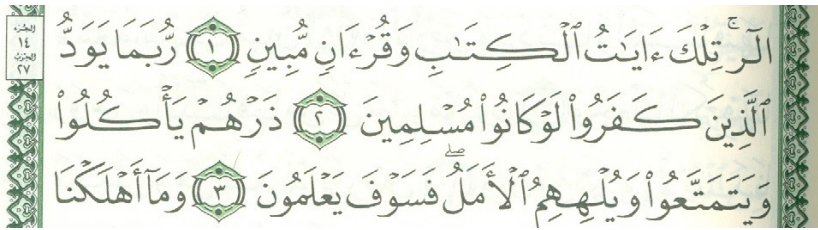 الجزء
١٤
الحزب
٢٧
الٓرۚ تِلْكَ ءَايَٰتُ ٱلْكِتَٰبِ وَقُرْءَانٍ مُّبِينٍ ١ رُّبَمَا يَوَدُّ
ٱلَّذِينَ كَفَرُوا۟ لَوْ كَانُوا۟ مُسْلِمِينَ ٢ ذَرْهُمْ يَأْكُلُوا۟
وَيَتَمَتَّعُوا۟ وَيُلْهِهِمُ ٱلْأَمَلُۖ فَسَوْفَ يَعْلَمُونَ ٣ وَمَآ أَهْلَكْنَا